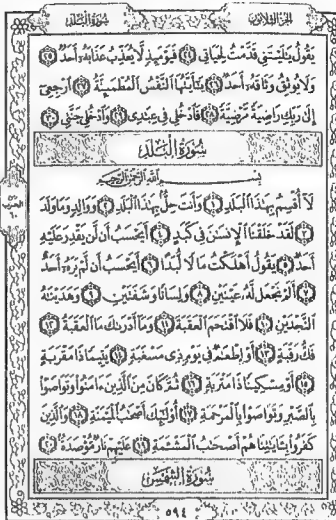 الجزء الثلاثون سُورَةُ البَلَدِ
يَقُولُ يَٰلَيْتَنِى قَدَّمْتُ لِحَيَاتِى ٢٤ فَيَوْمَئِذٍ لَّا يُعَذِّبُ عَذَابَهُۥٓ أَحَدٌ ٢٥
وَلَا يُوثِقُ وَثَاقَهُۥٓ أَحَدٌ ٢٦ يَٰٓأَيَّتُهَا ٱلنَّفْسُ ٱلْمُطْمَئِنَّةُ ٢٧ ٱرْجِعِىٓ
إِلَىٰ رَبِّكِ رَاضِيَةً مَّرْضِيَّةً ٢٨ فَٱدْخُلِى فِى عِبَٰدِى ٢٩ وَٱدْخُلِى جَنَّتِى ٣٠
سُورَةُ البَلَدِ
بِسْمِ ٱللَّهِ ٱلرَّحْمَٰنِ ٱلرَّحِيمِ
لَآ أُقْسِمُ بِهَٰذَا ٱلْبَلَدِ ١ وَأَنتَ حِلٌّۢ بِهَٰذَا ٱلْبَلَدِ ٢ وَوَالِدٍ وَمَا وَلَدَ
٣ لَقَدْ خَلَقْنَا ٱلْإِنسَٰنَ فِى كَبَدٍ ٤ أَيَحْسَبُ أَن لَّن يَقْدِرَ عَلَيْهِ
أَحَدٌ ٥ يَقُولُ أَهْلَكْتُ مَالًا لُّبَدًا ٦ أَيَحْسَبُ أَن لَّمْ يَرَهُۥٓ أَحَدٌ
٧ أَلَمْ نَجْعَل لَّهُۥ عَيْنَيْنِ ٨ وَلِسَانًا وَشَفَتَيْنِ ٩ وَهَدَيْنَٰهُ
ٱلنَّجْدَيْنِ ١٠ فَلَا ٱقْتَحَمَ ٱلْعَقَبَةَ ١١ وَمَآ أَدْرَىٰكَ مَا ٱلْعَقَبَةُ ١٢
فَكُّ رَقَبَةٍ ١٣ أَوْ إِطْعَٰمٌ فِى يَوْمٍ ذِى مَسْغَبَةٍ ١٤ يَتِيمًا ذَا مَقْرَبَةٍ
١٥ أَوْ مِسْكِينًا ذَا مَتْرَبَةٍ ١٦ ثُمَّ كَانَ مِنَ ٱلَّذِينَ ءَامَنُوا۟ وَتَوَاصَوْا۟
بِٱلصَّبْرِ وَتَوَاصَوْا۟ بِٱلْمَرْحَمَةِ ١٧ أُو۟لَٰٓئِكَ أَصْحَٰبُ ٱلْمَيْمَنَةِ ١٨ وَٱلَّذِينَ
كَفَرُوا۟ بِـَٔايَٰتِنَا هُمْ أَصْحَٰبُ ٱلْمَشْـَٔمَةِ ١٩ عَلَيْهِمْ نَارٌ مُّؤْصَدَةٌۢ ٢٠
سُورَةُ الشَّمْسِ
٥٩٤